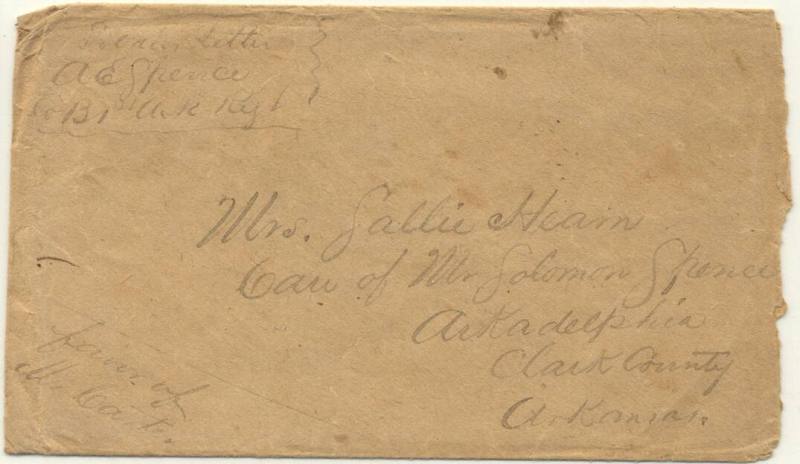 Letter
A E Spence
Co B 1st Ark Regt
Mrs. Sallie Hearn
Care of Mr Solomon Spence
Arkadelphia
Clark County
Arkansas.
favor of